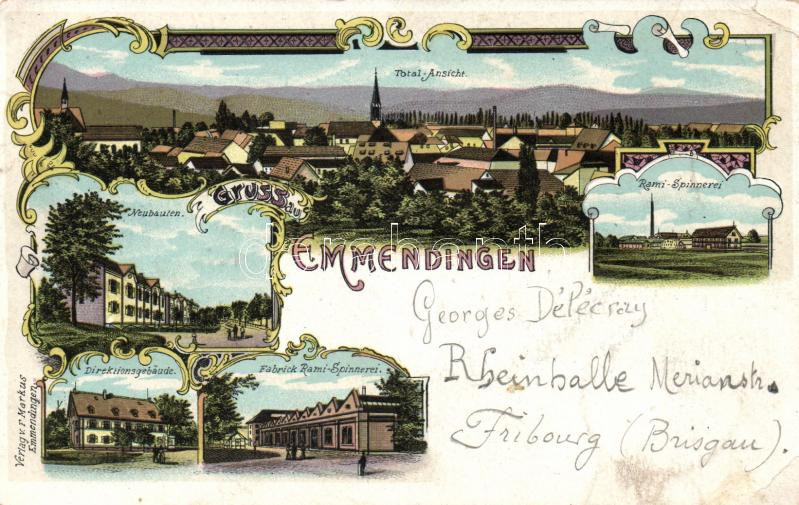 Total-Ansicht.
Rami-Spinnerei
Neubauten.
Gruss aus
EMMENDINGEN
Direktionsgebäude.
Fabrick Rami-Spinnerei.
Verlag v. F. Markus
Emmendingen.
Georges
Rheinhalle Merianstr.
Fribourg (Brisgau).
darabanth